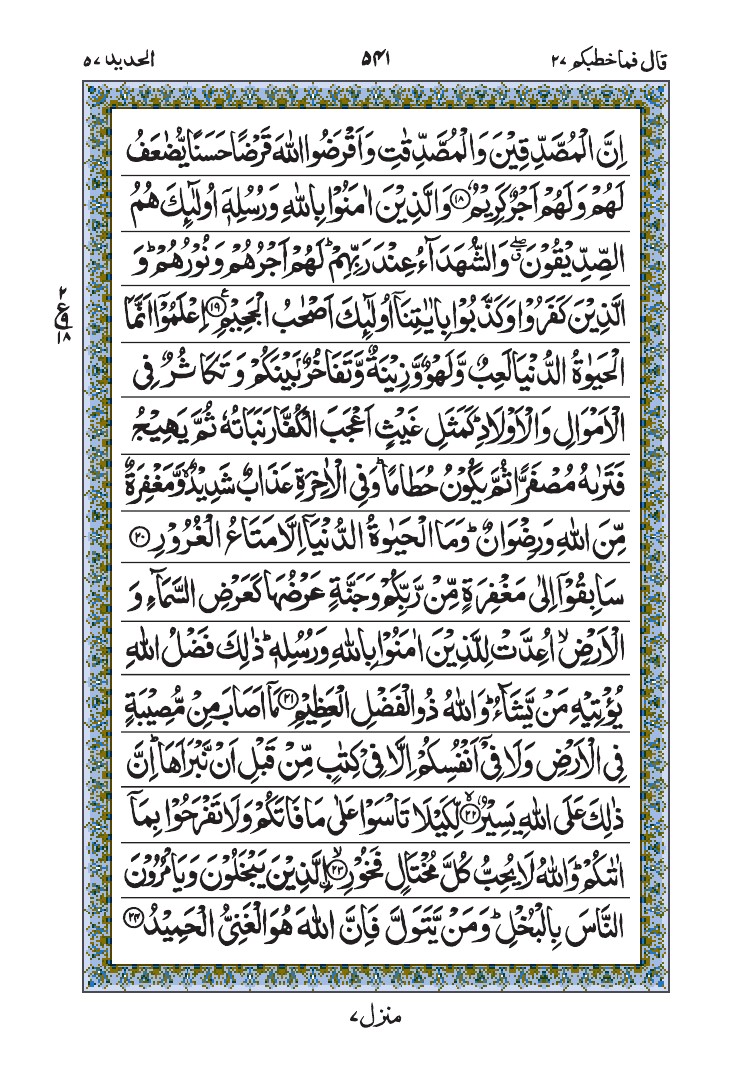 قال فما خطبكم ۲۷ ۵۴۱ الحديد ۵۷
اِنَّ الْمُصَّدِّقِيْنَ وَالْمُصَّدِّقٰتِ وَاَقْرَضُوا اللّٰهَ قَرْضًا حَسَنًا يُّضٰعَفُ
لَهُمْ وَلَهُمْ اَجْرٌ كَرِيْمٌ ﴿۱۸﴾ وَالَّذِيْنَ اٰمَنُوْا بِاللّٰهِ وَرُسُلِهٖۤ اُولٰٓئِكَ هُمُ
الصِّدِّيْقُوْنَ ۖۗ وَالشُّهَدَآءُ عِنْدَ رَبِّهِمْ ؕ لَهُمْ اَجْرُهُمْ وَنُوْرُهُمْ ؕ وَ
الَّذِيْنَ كَفَرُوْا وَكَذَّبُوْا بِاٰيٰتِنَاۤ اُولٰٓئِكَ اَصْحٰبُ الْجَحِيْمِ ﴿۱۹﴾ اِعْلَمُوْۤا اَنَّمَا
الْحَيٰوةُ الدُّنْيَا لَعِبٌ وَّلَهْوٌ وَّزِيْنَةٌ وَّتَفَاخُرٌۢ بَيْنَكُمْ وَتَكَاثُرٌ فِى
الْاَمْوَالِ وَالْاَوْلَادِ ؕ كَمَثَلِ غَيْثٍ اَعْجَبَ الْكُفَّارَ نَبَاتُهٗ ثُمَّ يَهِيْجُ
فَتَرٰىهُ مُصْفَرًّا ثُمَّ يَكُوْنُ حُطَامًا ؕ وَفِى الْاٰخِرَةِ عَذَابٌ شَدِيْدٌ ۙ وَّمَغْفِرَةٌ
مِّنَ اللّٰهِ وَرِضْوَانٌ ؕ وَمَا الْحَيٰوةُ الدُّنْيَاۤ اِلَّا مَتَاعُ الْغُرُوْرِ ﴿۲۰﴾
سَابِقُوْۤا اِلٰى مَغْفِرَةٍ مِّنْ رَّبِّكُمْ وَجَنَّةٍ عَرْضُهَا كَعَرْضِ السَّمَآءِ وَ
الْاَرْضِ ۙ اُعِدَّتْ لِلَّذِيْنَ اٰمَنُوْا بِاللّٰهِ وَرُسُلِهٖ ؕ ذٰلِكَ فَضْلُ اللّٰهِ
يُؤْتِيْهِ مَنْ يَّشَآءُ ؕ وَاللّٰهُ ذُو الْفَضْلِ الْعَظِيْمِ ﴿۲۱﴾ مَاۤ اَصَابَ مِنْ مُّصِيْبَةٍ
فِى الْاَرْضِ وَلَا فِىْۤ اَنْفُسِكُمْ اِلَّا فِىْ كِتٰبٍ مِّنْ قَبْلِ اَنْ نَّبْرَاَهَا ؕ اِنَّ
ذٰلِكَ عَلَى اللّٰهِ يَسِيْرٌ ﴿۲۲﴾ لِّكَيْلَا تَاْسَوْا عَلٰى مَا فَاتَكُمْ وَلَا تَفْرَحُوْا بِمَاۤ
اٰتٰىكُمْ ؕ وَاللّٰهُ لَا يُحِبُّ كُلَّ مُخْتَالٍ فَخُوْرِ ۙ ﴿۲۳﴾ اِلَّذِيْنَ يَبْخَلُوْنَ وَيَاْمُرُوْنَ
النَّاسَ بِالْبُخْلِ ؕ وَمَنْ يَّتَوَلَّ فَاِنَّ اللّٰهَ هُوَ الْغَنِىُّ الْحَمِيْدُ ﴿۲۴﴾
۲
ع
۹
۱۸
منزل ۷